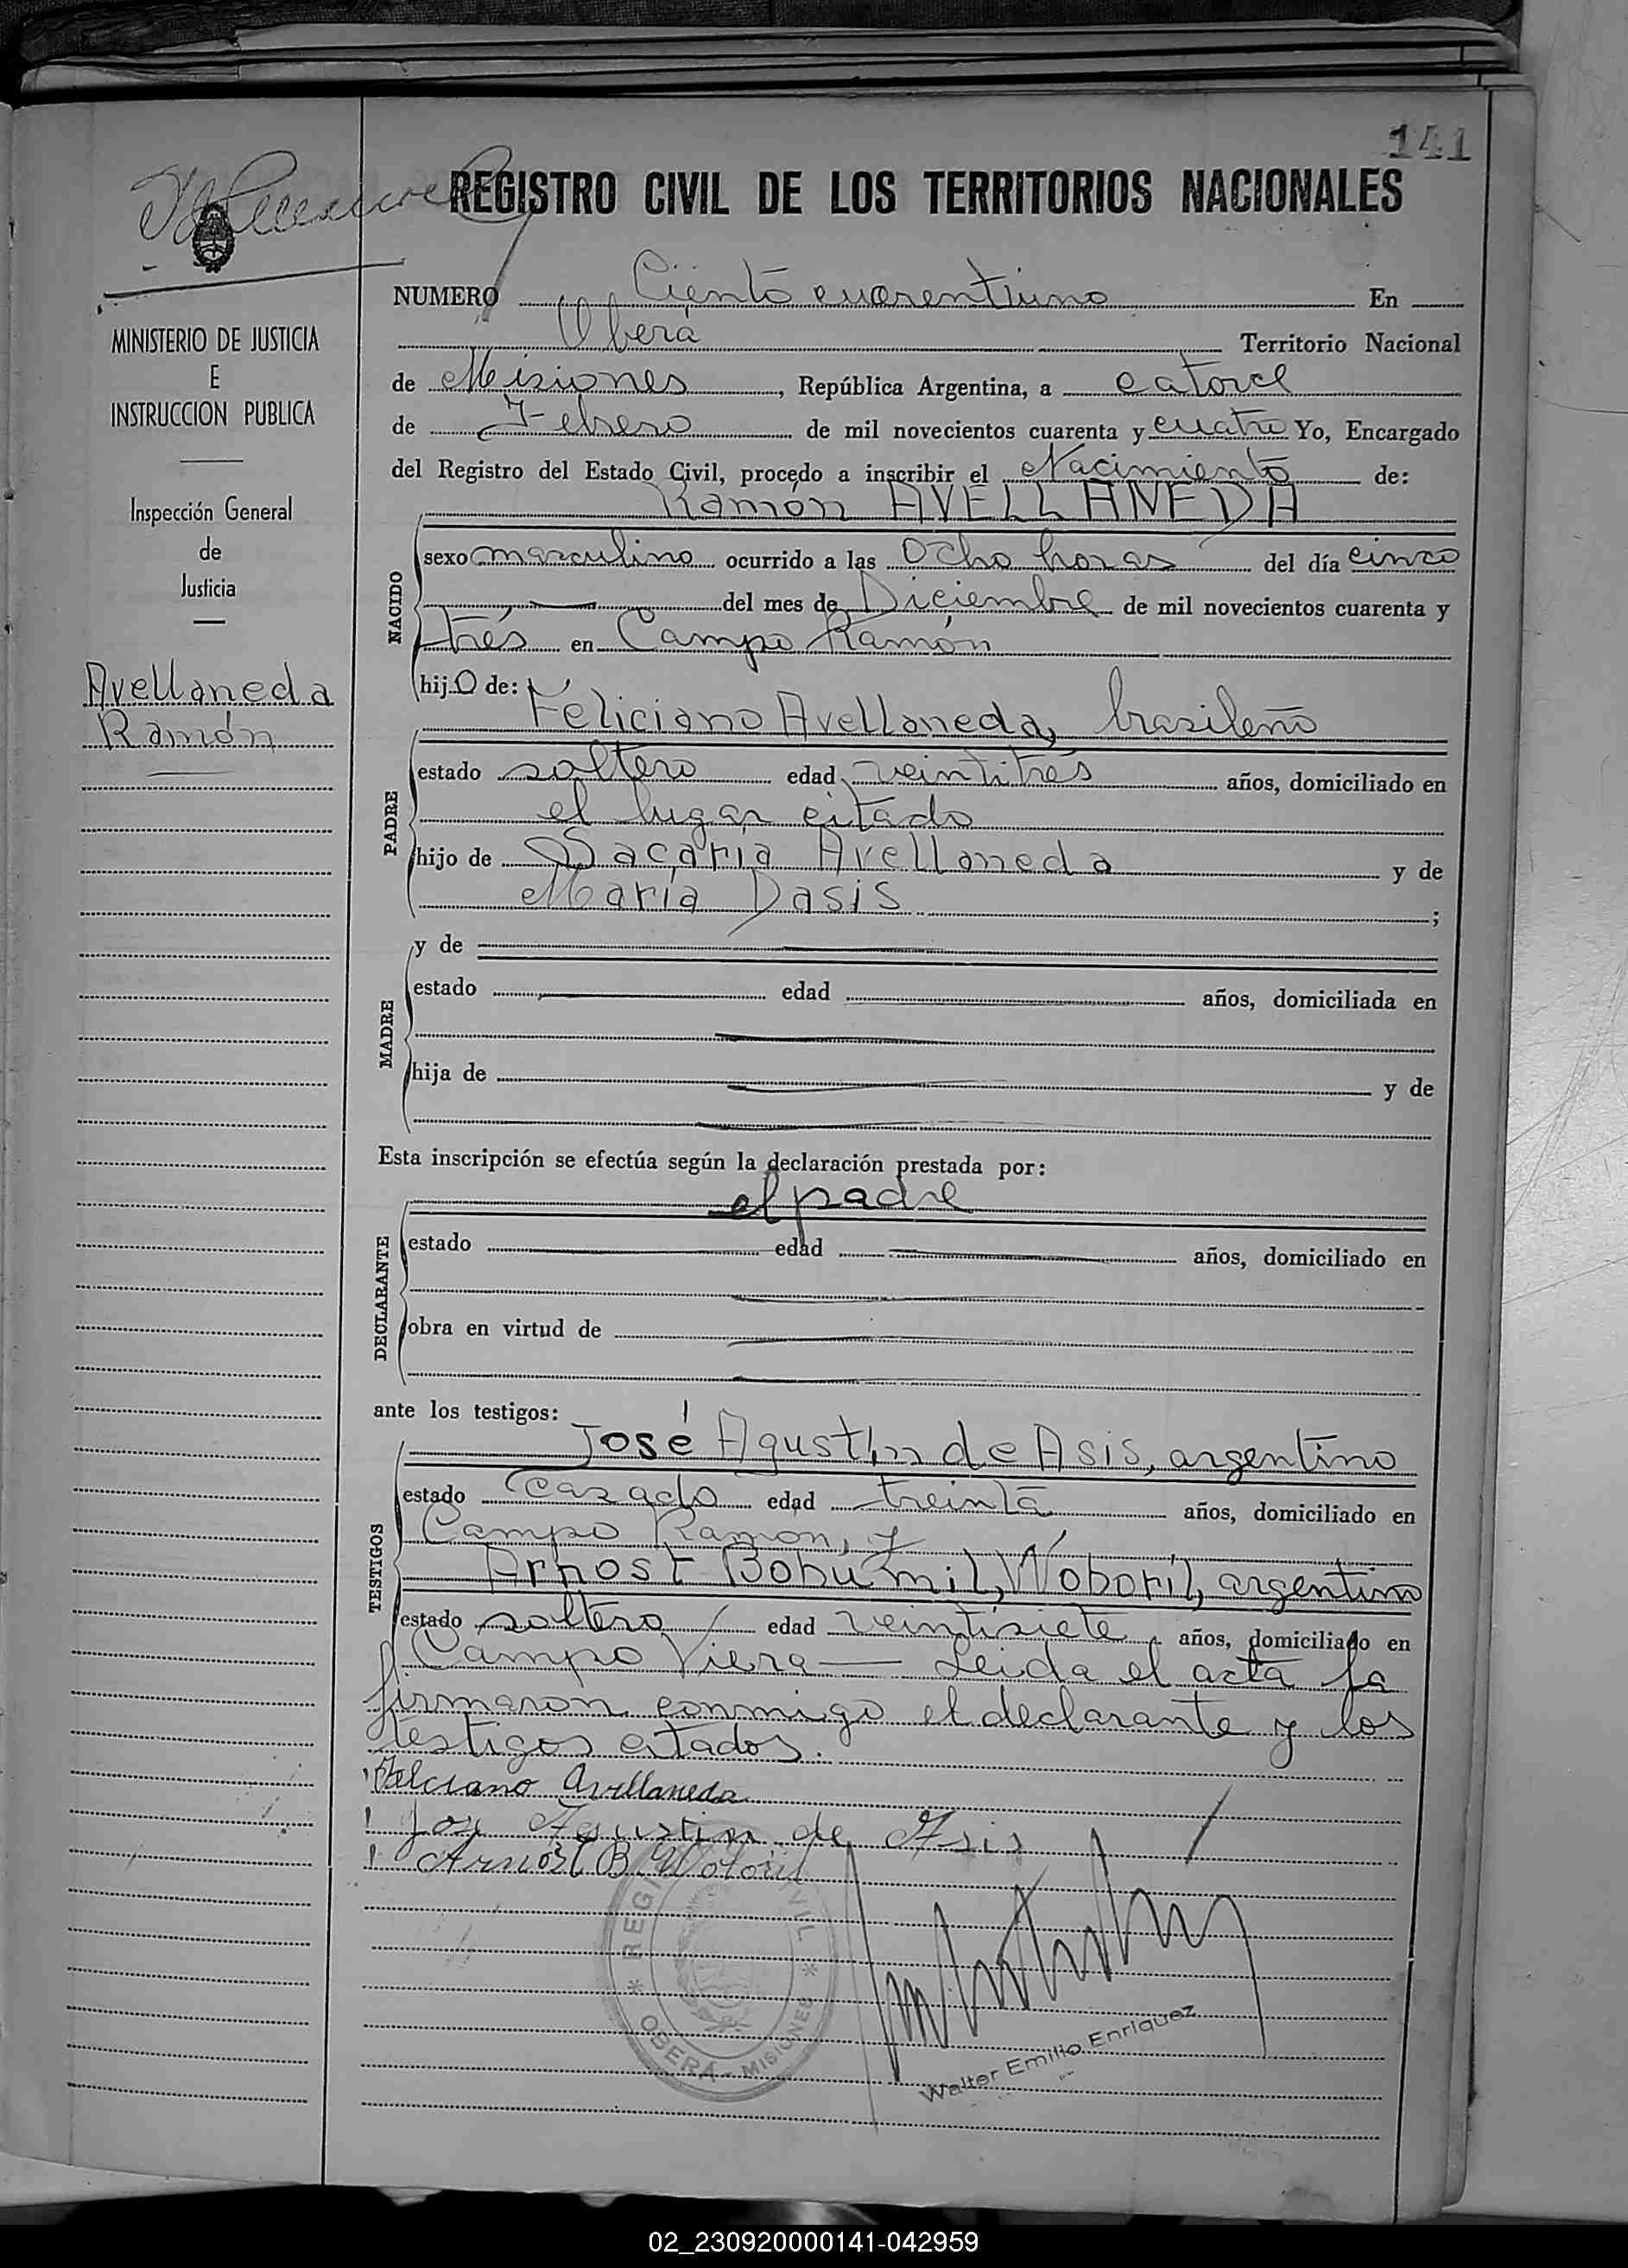 141
REGISTRO CIVIL DE LOS TERRITORIOS NACIONALES
NUMERO Ciento cuarentiuno En
Oberá Territorio Nacional
de Misiones, República Argentina, a catorce
de Febrero de mil novecientos cuarenta y cuatro Yo, Encargado
del Registro del Estado Civil, procedo a inscribir el Nacimiento de:
Ramón AVELLANEDA
NACIDO
sexo masculino ocurrido a las Ocho horas del día cinco
del mes de Diciembre de mil novecientos cuarenta y
trés en Campo Ramón
hijo de:
Feliciano Avellaneda, brasileño
PADRE
estado soltero edad veintitrés años, domiciliado en
el lugar citado
hijo de Sacaria Avellaneda y de
María Dasis ;
MADRE
y de
estado edad años, domiciliada en
hija de y de
Esta inscripción se efectúa según la declaración prestada por:
el padre
DECLARANTE
estado edad años, domiciliado en
obra en virtud de
ante los testigos:
José Agustín de Asis, argentino
TESTIGOS
estado casado edad treinta años, domiciliado en
Campo Ramón, y
Arnost Bohumil, Woboril, argentino
estado soltero edad veintisiete, años, domiciliado en
Campo Viera — Leida el acta la
firmaron conmigo el declarante y los
testigos citados.
Felciano Avellaneda
Jose Agustin de Asis
Arnost B. Woboril
REGISTRO CIVIL
* OBERÁ - MISIONES *
Walter Emilio Enriquez
MINISTERIO DE JUSTICIA
E
INSTRUCCION PUBLICA
Inspección General
de
Justicia
Avellaneda
Ramón
02_230920000141-042959